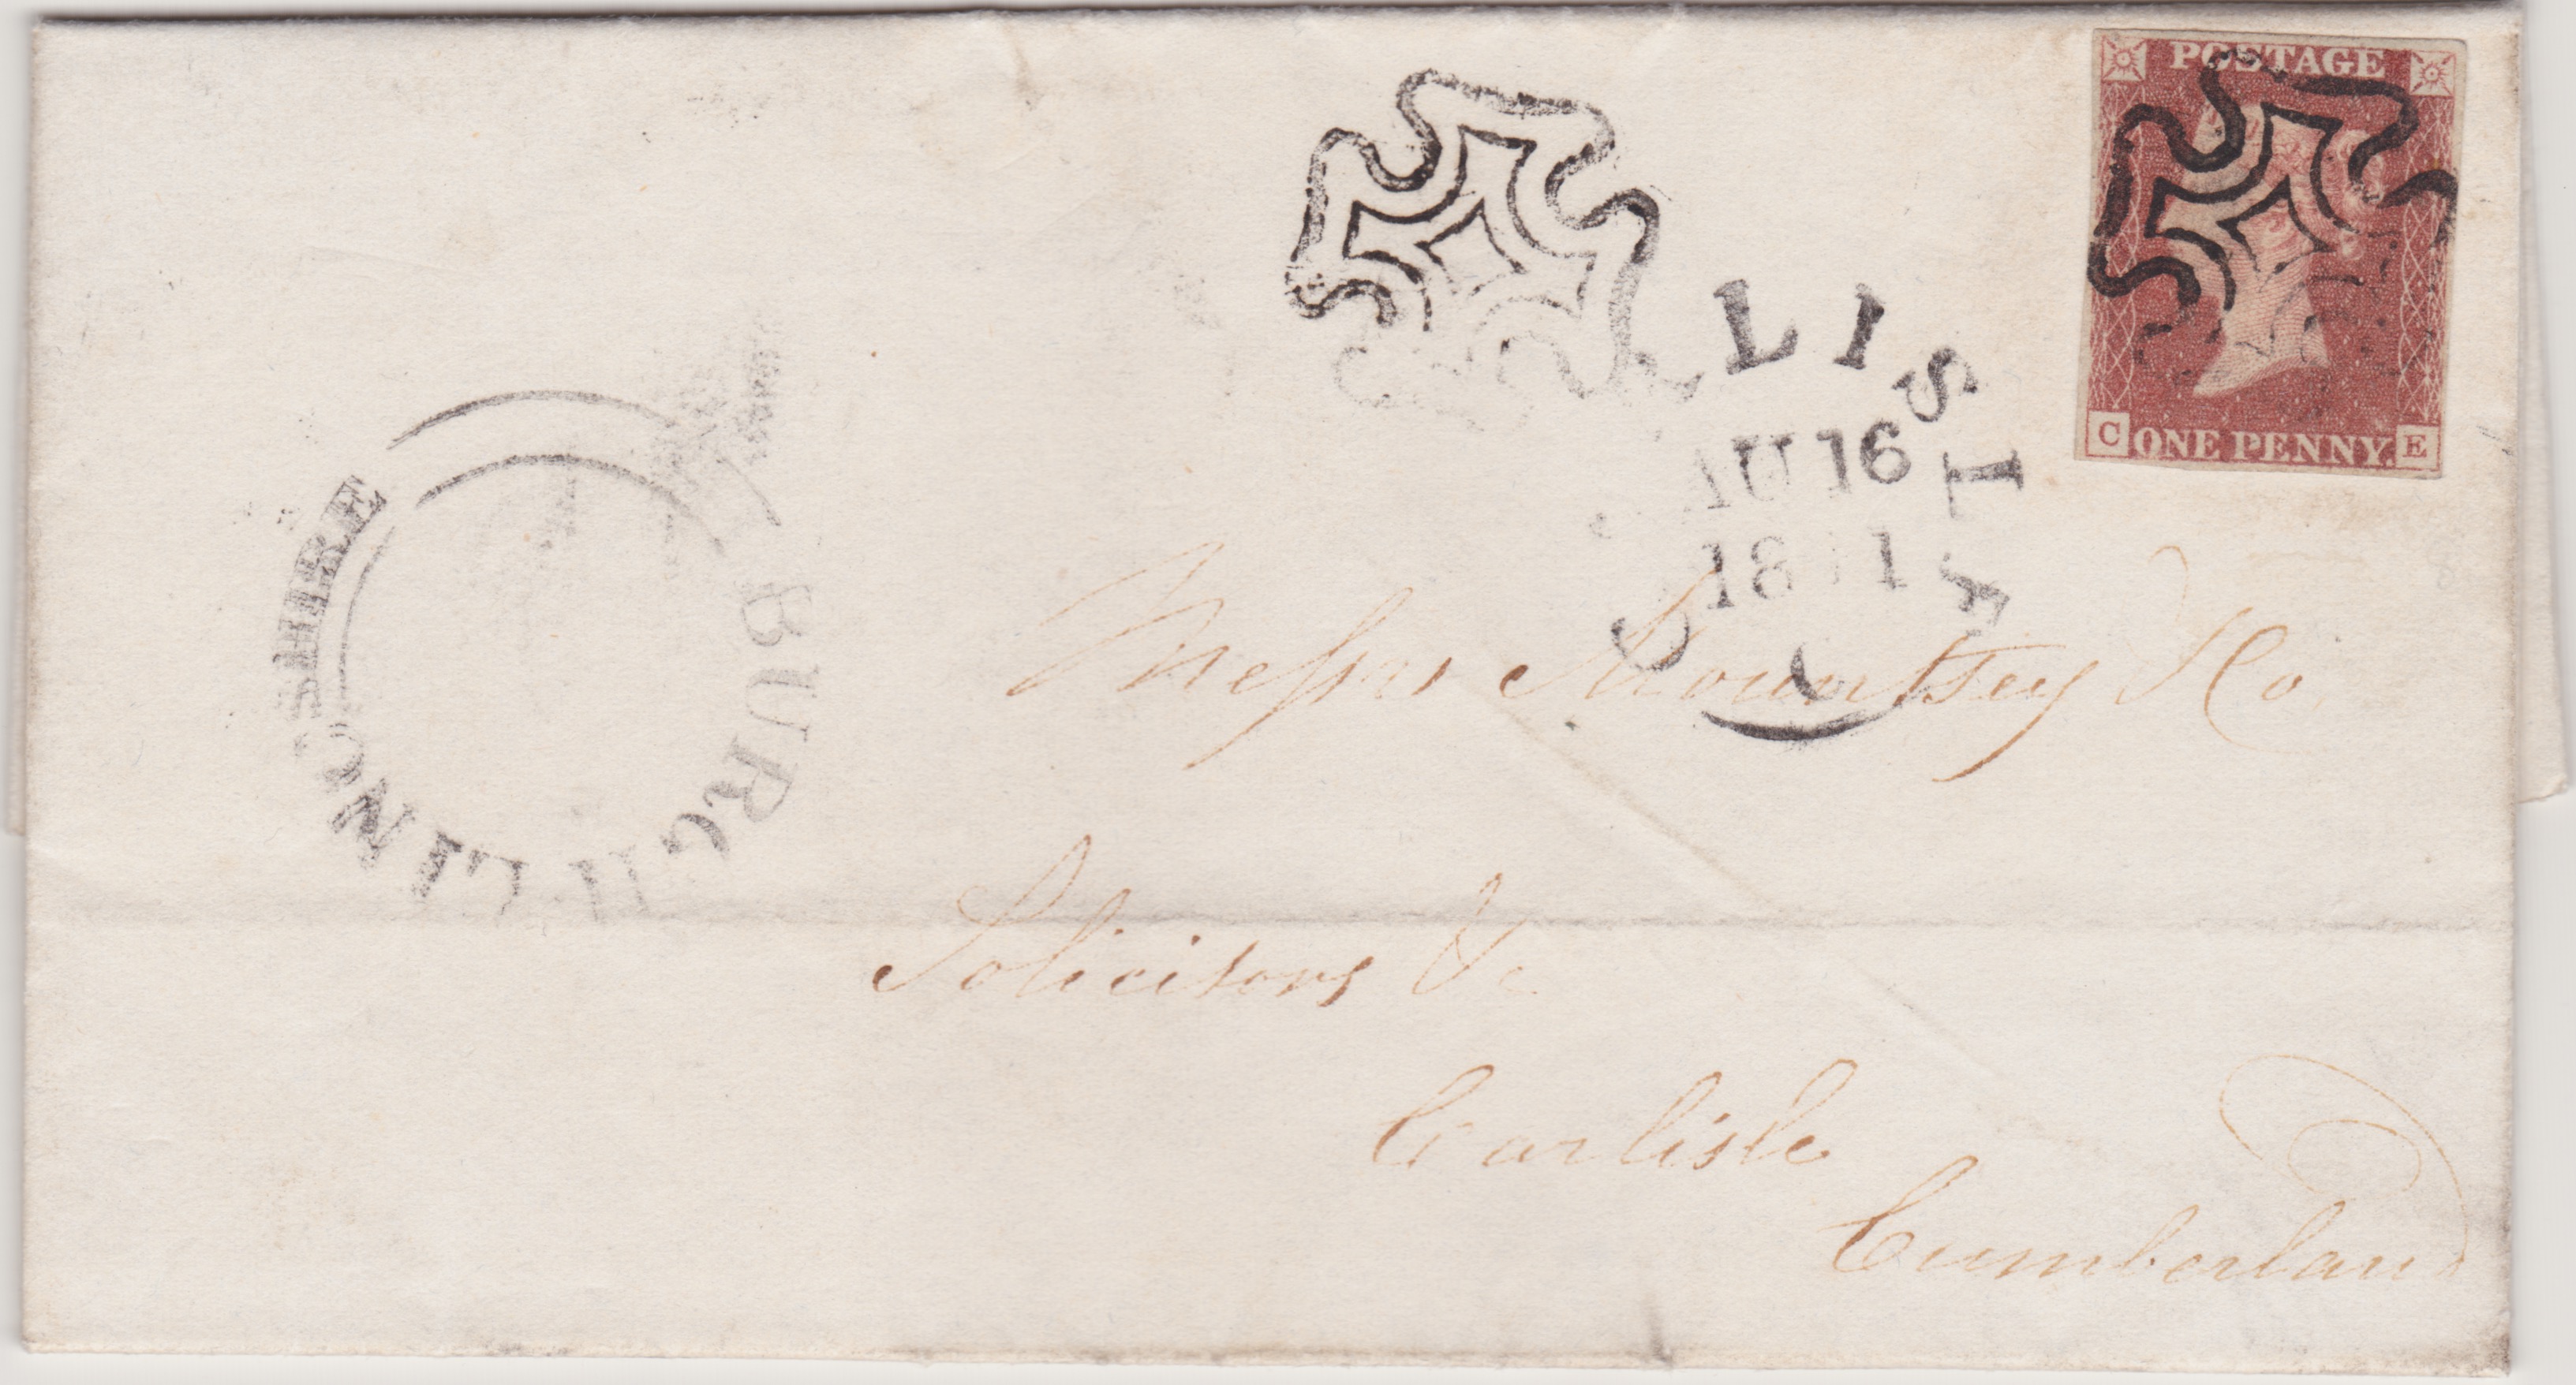 POSTAGE
C ONE PENNY. E
LISI
AU 16
1841
BURGH LINCSHIRE
Messrs Mounsey & Co.
Solicitors &c
Carlisle
Cumberland